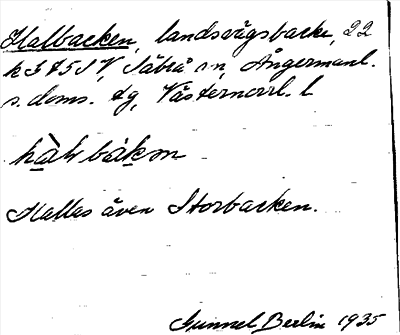 Halbacken, landsvägsbacke, 22
k 3785 SV, Säbrå sn, Ångermanl.
s. doms. tg, Västernorrl. l
hàl bákən
Kallas även Storbacken.
Gunnel Berlin 1935